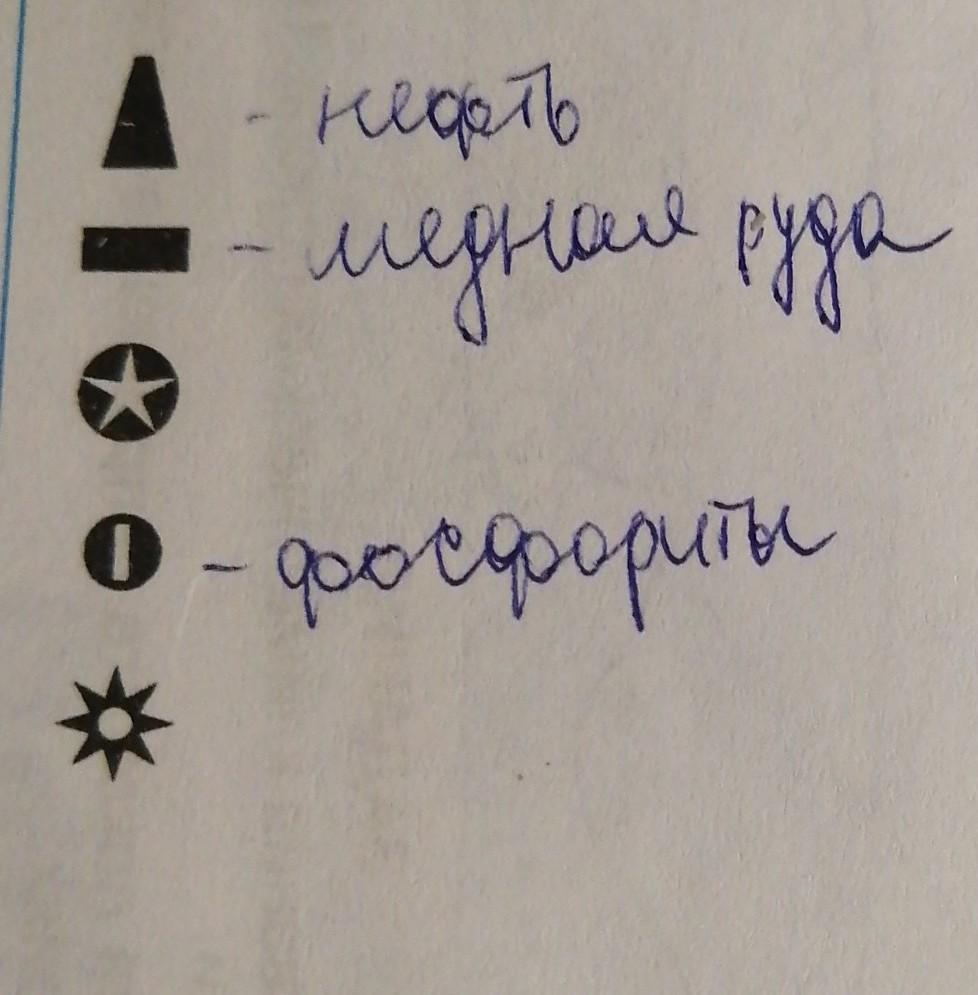 - нефть
- медная руда
- фосфориты